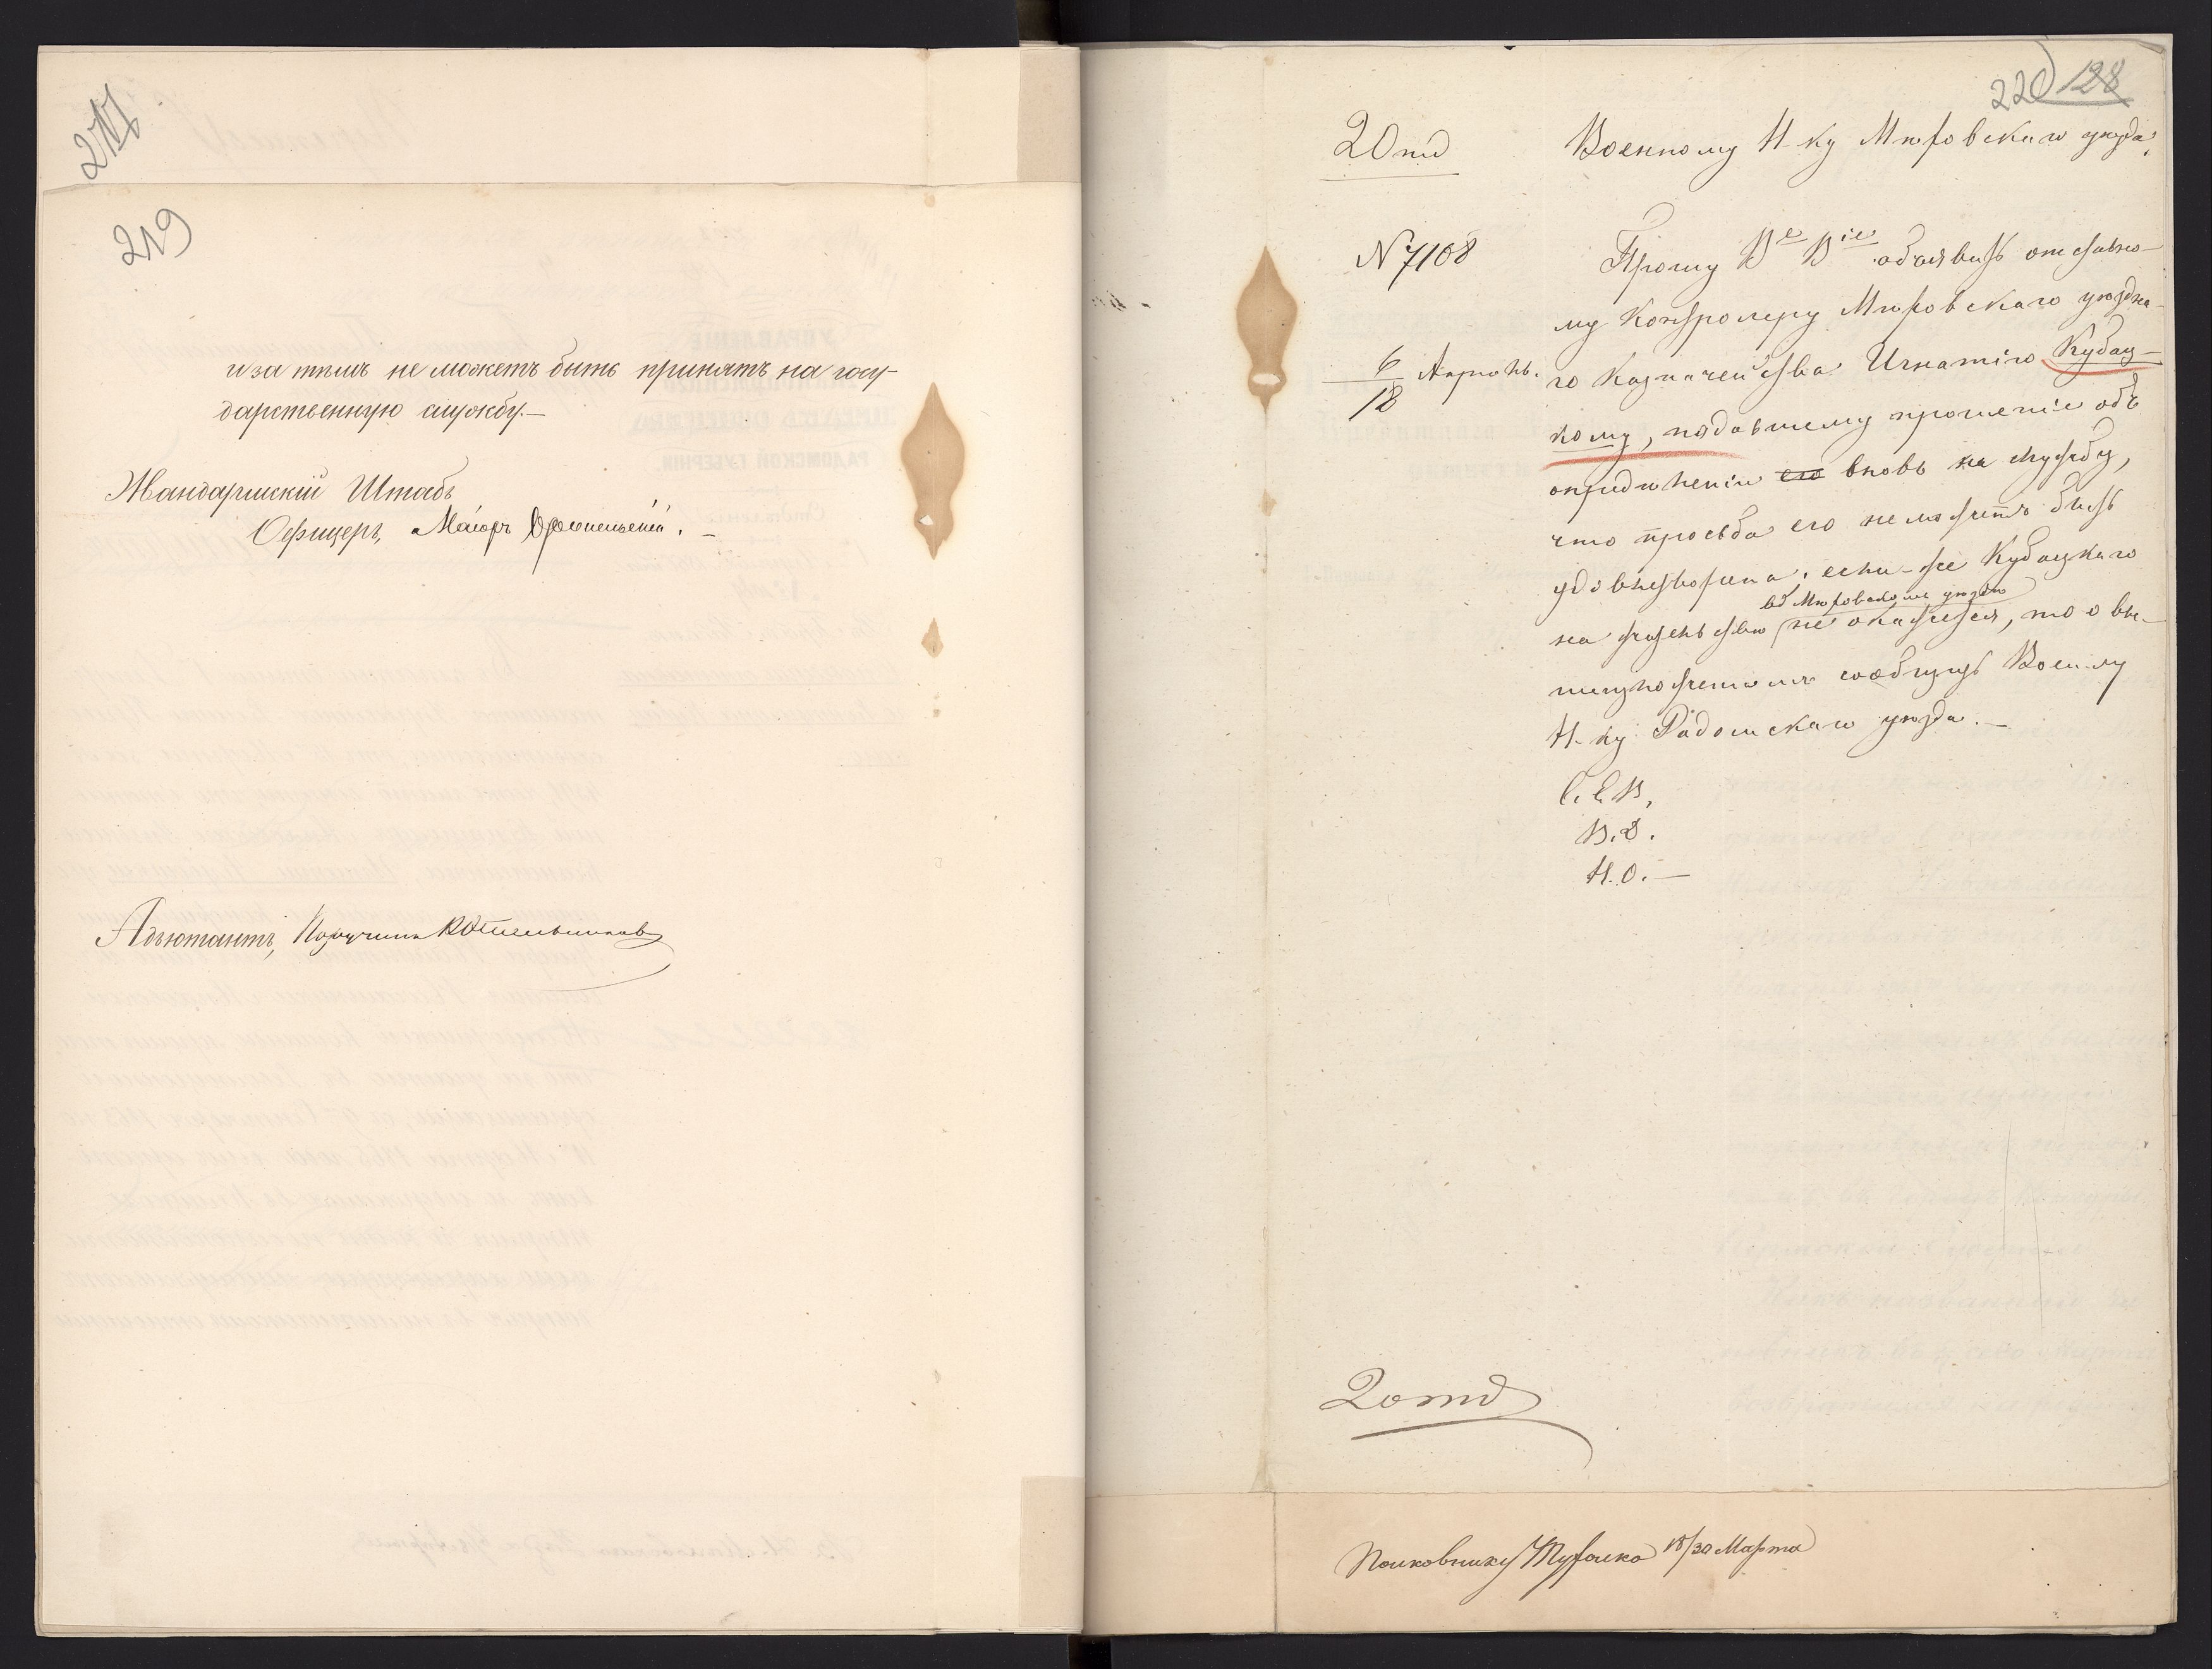 217
219
и за тѣмъ не можетъ быть принятъ на госу-
дарственную службу.—
Жандармскій Штабъ
Офицеръ, Маіоръ
Адъютантъ, Поручикъ Котельниковъ
220 128
2 Отд
Военному Н-ку Мѣховскаго уѣзда.
N 7108
6/18 Апрѣль.
Прошу Вᵉ Вⁱᵉ объявить отставно-
му Контролеру Мѣховскаго уѣздна-
го Казначейства Игнатію Кубац-
кому, подавшему прошеніе объ
опредѣленіи его вновь на службу,
что просьба его не можетъ быть
удовлетворена; если-же Кубацкаго
въ Мѣховскомъ уѣздѣ
на жительствѣ не окажется, то о вы-
шеизложенномъ сообщить Воен-му
Н-ку Радомскаго уѣзда.—
С. С. В.
В. Д.
Н. О.—
2 отд
Полковнику 18/30 Марта